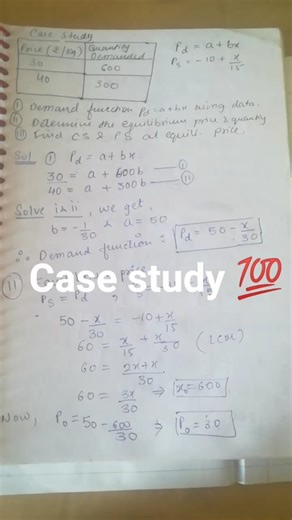 Case Study
Price (₹/kg) Quantity Demanded
30 600
40 300
Pd = a + bx
Ps = -10 + x/15
(i) Demand function Pd = a + bx using data.
(ii) Determine the equilibrium price & quantity
(iii) Find CS & PS at equili. price.
Sol (i) Pd = a + bx
30 = a + 600b (i)
40 = a + 300b (ii)
Solve i & ii, we get
b = -1/30 & a = 50
∴ Demand function: Pd = 50 - x/30
Case study 💯
(ii)
Ps = Pd
50 - x/30 = -10 + x/15
60 = x/15 + x/30 (LCM)
60 = 2x + x/30
60 = 3x/30 ⇒ x₀ = 600
Now, P₀ = 50 - 600/30 ⇒ P₀ = 30